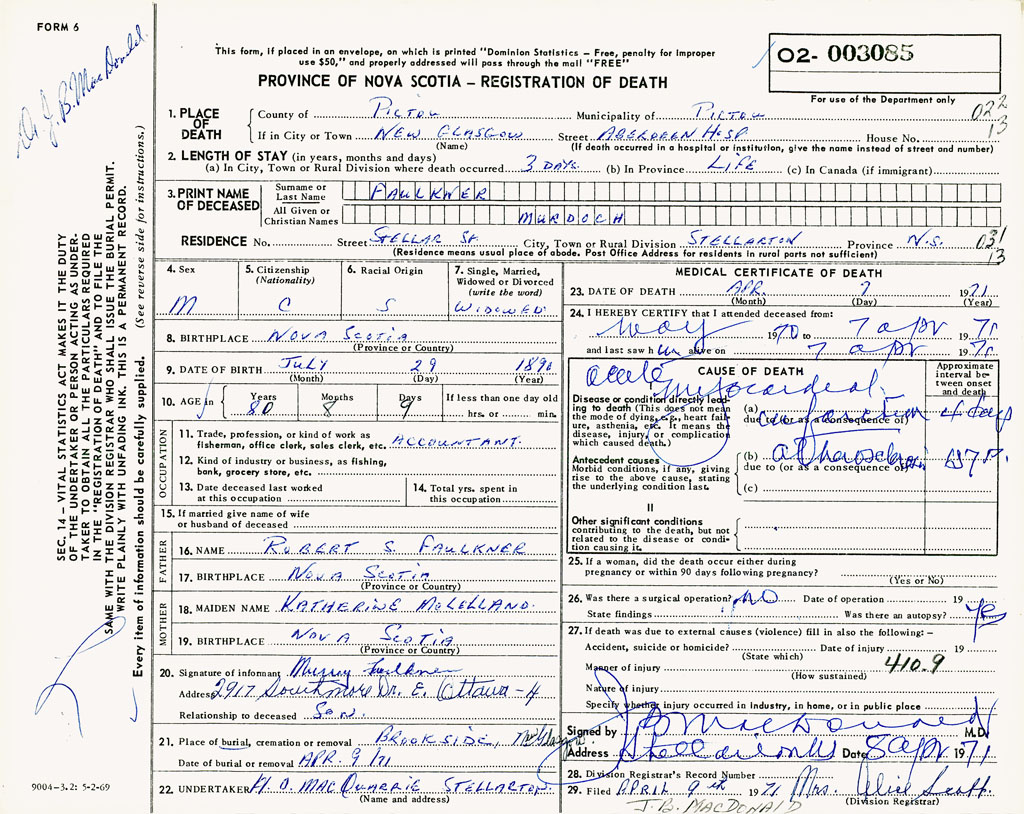 FORM 6
Dr J. B. MacDonald.
This form, if placed in an envelope, on which is printed "Dominion Statistics – Free, penalty for improper
use $50," and properly addressed will pass through the mail "FREE"
PROVINCE OF NOVA SCOTIA – REGISTRATION OF DEATH
02- 003085
For use of the Department only
022
13
1. PLACE OF DEATH
County of PICTOU Municipality of PICTOU
If in City or Town NEW GLASGOW Street ABERDEEN HOSP House No.
(Name) (If death occurred in a hospital or institution, give the name instead of street and number)
2. LENGTH OF STAY (in years, months and days)
(a) In City, Town or Rural Division where death occurred 3 DAYS (b) In Province LIFE (c) In Canada (if immigrant)
3. PRINT NAME OF DECEASED
Surname or Last Name FAULKNER
All Given or Christian Names MURDOCH
RESIDENCE No. Street STELLAR ST. City, Town or Rural Division STELLARTON Province N.S. 031
13
(Residence means usual place of abode. Post Office Address for residents in rural parts not sufficient)
4. Sex M
5. Citizenship (Nationality) C
6. Racial Origin S
7. Single, Married, Widowed or Divorced (write the word) WIDOWED
8. BIRTHPLACE NOVA SCOTIA
(Province or Country)
9. DATE OF BIRTH JULY 29 1890
(Month) (Day) (Year)
10. AGE in Years 80 Months 8 Days 9 If less than one day old
hrs. or min.
OCCUPATION
11. Trade, profession, or kind of work as
fisherman, office clerk, sales clerk, etc. ACCOUNTANT.
12. Kind of industry or business, as fishing,
bank, grocery store, etc.
13. Date deceased last worked
at this occupation
14. Total yrs. spent in
this occupation
15. If married give name of wife
or husband of deceased
FATHER
16. NAME ROBERT S. FAULKNER
17. BIRTHPLACE NOVA SCOTIA
(Province or Country)
MOTHER
18. MAIDEN NAME KATHERINE McLELLAND.
19. BIRTHPLACE NOVA SCOTIA
(Province or Country)
20. Signature of informant Murray Faulkner
Address 2917 Southmore Dr. E. Ottawa-4
Relationship to deceased Son.
21. Place of burial, cremation or removal BROOKSIDE,
Date of burial or removal APR. 9/71
22. UNDERTAKER H. D. MACQUARRIE STELLARTON
(Name and address)
MEDICAL CERTIFICATE OF DEATH
23. DATE OF DEATH APR. 7 1971
(Month) (Day) (Year)
24. I HEREBY CERTIFY that I attended deceased from:
May 1970 to 7 apr 1971
and last saw him alive on 7 apr 1971
CAUSE OF DEATH
Approximate interval between onset and death
Disease or condition directly leading to death (This does not mean
the mode of dying, e.g., heart failure, asthenia, etc. It means the
disease, injury, or complication which caused death.)
acute myocardeal
(a) infarction 4 days
due to (or as a consequence of)
Antecedent causes
Morbid conditions, if any, giving
rise to the above cause, stating
the underlying condition last.
(b)
due to (or as a consequence of)
(c)
II
Other significant conditions
contributing to the death, but not
related to the disease or condition causing it.
25. If a woman, did the death occur either during
pregnancy or within 90 days following pregnancy?
(Yes or No)
26. Was there a surgical operation? NO Date of operation 19
State findings Was there an autopsy? Yes
27. If death was due to external causes (violence) fill in also the following:–
Accident, suicide or homicide? Date of injury 19
(State which)
Manner of injury 410.9
(How sustained)
Nature of injury
Specify whether injury occurred in industry, in home, or in public place
Signed by J B MacDonald M.D.
Address Date 8 apr 1971
28. Division Registrar's Record Number
29. Filed APRIL 9th 1971 Mrs. Alice Scott.
(Division Registrar)
J. B. MACDONALD
SEC. 14 – VITAL STATISTICS ACT MAKES IT THE DUTY
OF THE UNDERTAKER OR PERSON ACTING AS UNDER-
TAKER TO OBTAIN ALL THE PARTICULARS REQUIRED
IN THE "REGISTRATION OF DEATH" AND TO FILE THE
SAME WITH THE DIVISION REGISTRAR WHO SHALL ISSUE THE BURIAL PERMIT.
WRITE PLAINLY WITH UNFADING INK. THIS IS A PERMANENT RECORD.
Every item of information should be carefully supplied. (See reverse side for instructions.)
9004–3.2: 5-2-69